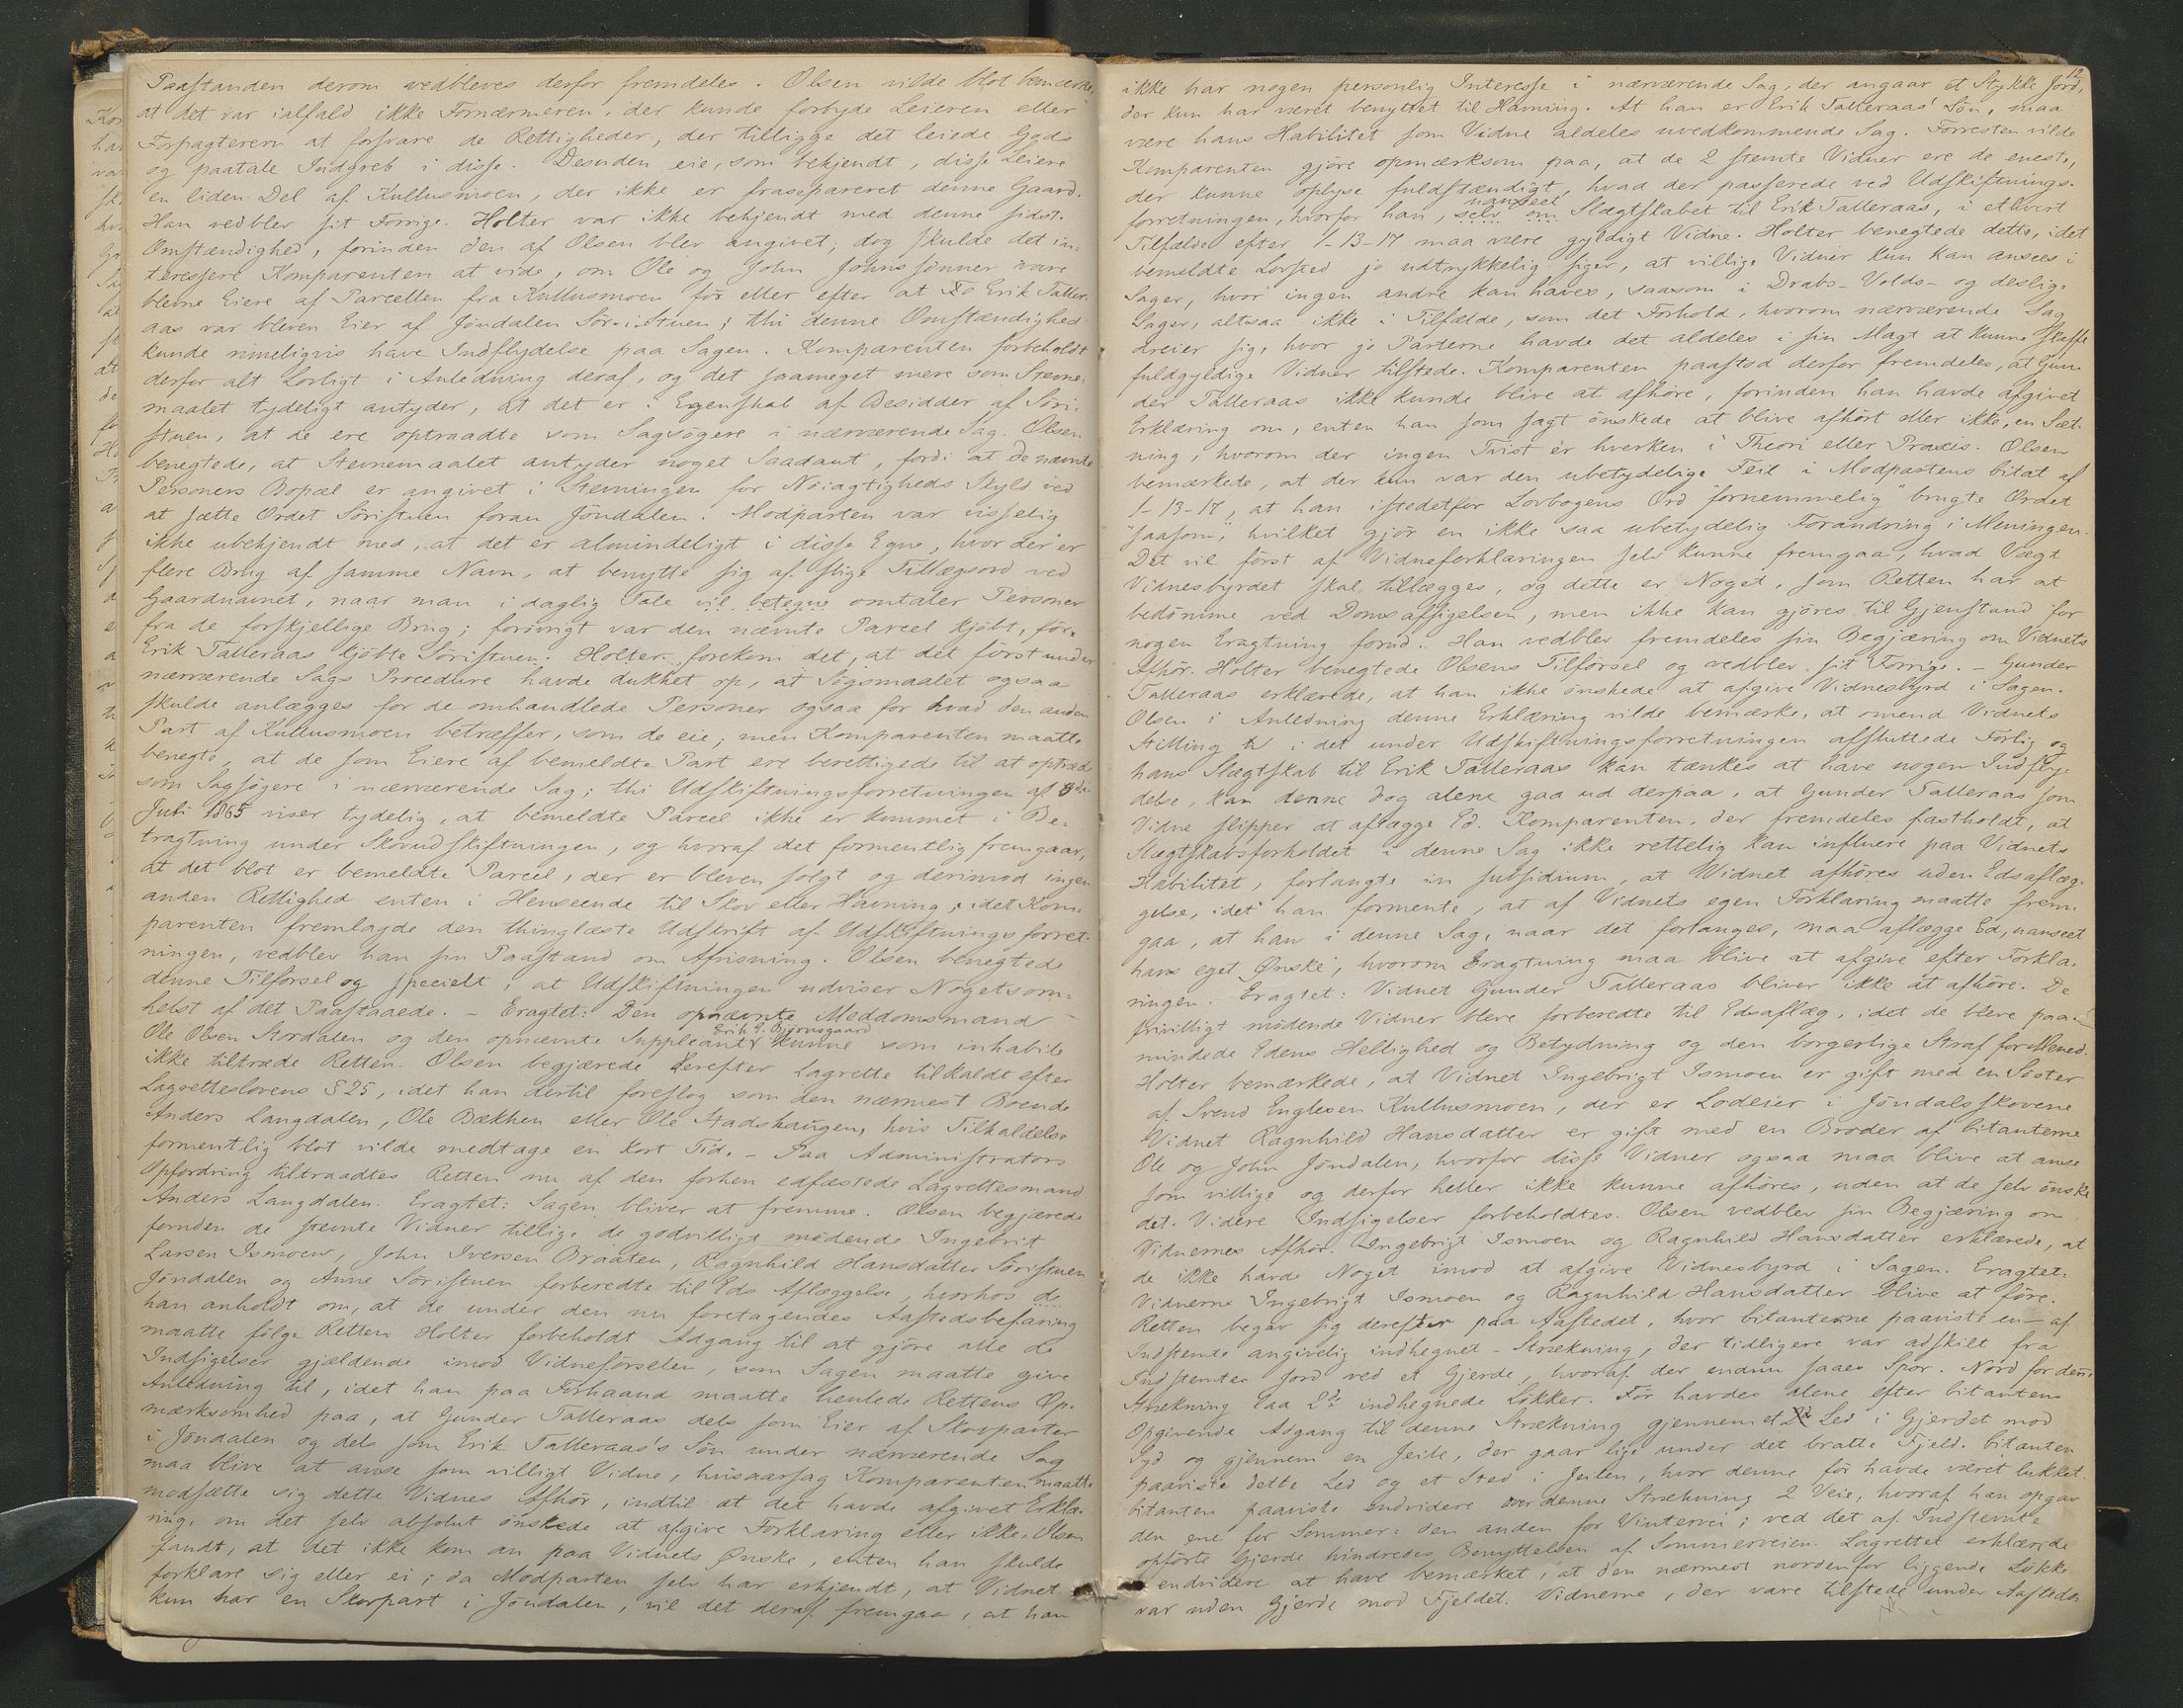 Paastanden derom vedbleves derfor fremdeles. Olsen vilde blot bemærke,
at det var ialfald ikke Fornærmeren, der kunde forbyde Leieren eller
Forpagteren at forsvare de Rettigheder, der tilligge det leiede Gods
og paatale Indgreb i disse. Desuden eie, som bekjendt, disse Leiere
en liden Del af Kullusmoen, der ikke er frasepareret denne Gaard.
Han vedblev sit Forrige. Holter var ikke bekjendt med denne sidst.
Omstændighed, forinden den af Olsen blev angivet; dog skulde det in-
teressere Komparenten at vide, om Ole og John Johnssønner vare
blevne Eiere af Parcellen fra Kullusmoen før eller efter at Erik Taller-
aas var bleven Eier af Jøndalen Sør-i-stuen; thi denne Omstændighed
kunde rimeligvis have Indflydelse paa Sagen. Komparenten forbeholdt
derfor alt Lovligt i Anledning deraf, og det saameget mere som Stevne-
maalet tydeligt antyder, at det er i Egenskab af Besidder af Søri-
stuen, at de ere optraadte som Sagsøgere i nærværende Sag. Olsen
benegtede, at Stevnemaalet antyder noget Saadant, fordi at de nævnte
Personers Bopæl er angivet i Stevningen for Nøiagtigheds Skyld ved
at sætte Ordet Søristuen foran Jøndalen. Modparten var visselig
ikke ubekjendt med, at det er almindeligt i disse Egne, hvor der er
flere Brug af samme Navn, at benytte sig af slige Tillægsord ved
Gaardnavnet, naar man i daglig Tale vil betegne omtaler Personer
fra de forskjellige Brug; forøvrigt var den nævnte Parcel kjøbt, før
Erik Talleraas kjøbte Søristuen. Holter forekom det, at det først under
nærværende Sags Procedure havde dukket op, at Søgsmaalet ogsaa
skulde anlægges for de omhandlede Personer ogsaa for hvad den anden
Part af Kullusmoen betræffer, som de eie; men Komparenten maatte
benegte, at de som Eiere af bemeldte Part ere berettigede til at optræde
som Sagsøgere i nærværende Sag; thi Udskiftningsforretningen af
Juli 1865 viser tydelig, at bemeldte Parcel ikke er kommet i Be-
tragtning under Skovudskiftningen, og hvoraf det formentlig fremgaar,
at det blot er bemeldte Parcel, der er bleven solgt og derimod ingen
anden Rettighed enten i Henseende til Skov eller Havning; idet Kom-
parenten fremlagde den thinglæste Udskrift af Udskiftningsforret-
ningen, vedblev han sin Paastand om Afvisning. Olsen benegtede
denne Tilførsel og specielt, at Udskiftningen udviser Nogetsom-
helst af det Paastaaede. – Eragtet: Den opnævnte Meddomsmand
Ole Olsen Stordalen og den opnævnte Suppleant Erik G. Bjørnsgaard kunne som inhabile
ikke tiltræde Retten. Olsen begjærede derefter Lagrette tilkaldt efter
Lagretteslovens § 25, idet han dertil foreslog som den nærmest Boende
Anders Langdalen, Ole Bækken eller Ole Stadshaugen, hvis Tilkaldelse
formentlig blot vilde medtage en kort Tid. – Paa Administrators
Opfordring tiltraadtes Retten nu af den forhen edfæstede Lagrettesmand
Anders Langdalen. Eragtet: Sagen bliver at fremme. Olsen begjærede
foruden de stevnte Vidner tillige de godvilligt mødende Ingebrit
Larsen Ismoen, John Iversen Braaten, Ragnhild Hansdatter Søristuen
Jøndalen og Anne Søristuen forberedte til Eds Aflæggelse, hvorhos de
han anholdt om, at de under den nu foretagendes Aastedsbefaring
maatte følge Retten. Holter forbeholdt Adgang til at gjøre alle de
Indsigelser gjældende imod Vidneførselen, som Sagen maatte give
Anledning til, idet han paa Forhaand maatte henlede Rettens Op-
mærksomhed paa, at Gunder Talleraas dels som Eier af Skovparter
i Jøndalen og dels som Erik Talleraas's Søn under nærværende Sag
maa blive at anse som villigt Vidne, hvisaarsag Komparenten maatte
modsætte sig dette Vidnes Afhør, indtil at det havde afgivet Erklæ-
ring, om det selv absolut ønskede at afgive Forklaring eller ikke. Olsen
fandt, at det ikke kom an paa Vidnets Ønske, enten han skulde
forklare sig eller ei; da Modparten selv har erkjendt, at Vidnet
kun har en Skovpart i Jøndalen, vil det deraf fremgaa, at han
12
ikke har nogen personlig Interesse i nærværende Sag, der angaar et Stykke Jord,
der kun har været benyttet til Havning. At han er Erik Talleraas' Søn, maa
være hans Habilitet som Vidne aldeles uvedkommende Sag. Forresten vilde
Komparenten gjøre opmærksom paa, at de 2 stevnte Vidner ere de eneste,
der kunne oplyse fuldstændigt, hvad der passerede ved Udskiftnings-
forretningen, hvorfor han, selv om uanseet Slægtskabet til Erik Talleraas, i ethvert
Tilfælde efter 1-13-17 maa være gyldigt Vidne. Holter benegtede dette, idet
bemeldte Lovsted jo udtrykkelig siger, at villige Vidner kun kan ansees i
Sager, hvor ingen andre kan haves, saasom i Drabs- Volds- og deslige
Sager, altsaa ikke i Tilfælde, som det Forhold, hvorom nærværende Sag
dreier sig, hvor jo Parterne havde det aldeles i sin Magt at kunne skaffe
fuldgyldige Vidner tilstede. Komparenten paastod derfor fremdeles, at Gun-
der Talleraas ikke kunde blive at afhøre, forinden han havde afgivet
Erklæring om, enten han som sagt ønskede at blive afhørt eller ikke, en Sæt-
ning, hvorom der ingen Tvist er hverken i Theori eller Praxis. Olsen
bemærkede, at der kun var den ubetydelige Feil i Modpartens Citat af
1-13-17, at han istedetfor Lovbogens Ord "fornemmelig" brugte Ordet
"saasom", hvilket gjør en ikke saa ubetydelig Forandring i Meningen.
Det vil først af Vidneforklaringen selv kunne fremgaa, hvad Vægt
Vidnesbyrdet skal tillægges, og dette er Noget, som Retten har at
bedømme ved Doms afsigelsen, men ikke kan gjøres til Gjenstand for
nogen Eragtning forud. Han vedblev fremdeles sin Begjæring om Vidnets
Afhør. Holter benegtede Olsens Tilførsel og vedblev sit Forrige. – Gunder
Talleraas erklærede, at han ikke ønskede at afgive Vidnesbyrd i Sagen.
Olsen i Anledning denne Erklæring vilde bemærke, at omend Vidnets
Stilling til i det under Udskiftningsforretningen afsluttede Forlig og
hans Slægtskab til Erik Talleraas kan tænkes at have nogen Indfly-
delse, kan denne dog alene gaa ud derpaa, at Gunder Talleraas som
Vidne slipper at aflægge Ed. Komparenten, der fremdeles fastholdt, at
Slægtskabsforholdet i denne Sag ikke rettelig kan influere paa Vidnets
Habilitet, forlangte in subsidium, at Vidnet afhøres uden Edsaflæg-
gelse, idet han formente, at af Vidnets egen Forklaring maatte frem-
gaa, at han i denne Sag, naar det forlanges, maa aflægge Ed, uanseet
hans eget Ønske, hvorom Eragtning maa blive at afgive efter Forkla-
ringen. Eragtet: Vidnet Gunder Talleraas bliver ikke at afhøre. De
frivilligt mødende Vidner bleve forberedte til Edsaflæg, idet de bleve paa-
mindede Edens Hellighed og Betydning og den borgerlige Straf for Mened.
Holter bemærkede, at Vidnet Ingebrigt Ismoen er gift med en Søster
af Svend Englesen Kullusmoen, der er Lodeier i Jøndalsskovene
Vidnet Ragnhild Hansdatter er gift med en Broder af Citanterne
Ole og John Jøndalen, hvorfor disse Vidner ogsaa maa blive at anse
som villige og derfor heller ikke kunne afhøres, uden at de selv ønske
det. Videre Indsigelser forbeholdtes. Olsen vedblev sin Begjæring om
Vidnernes Afhør. Ingebrigt Ismoen og Ragnhild Hansdatter erklærede, at
de ikke havde Noget imod at afgive Vidnesbyrd i Sagen. Eragtet:
Vidnerne Ingebrigt Ismoen og Ragnhild Hansdatter blive at føre.
Retten begav sig derefter paa Aastedet, hvor Citanterne paaviste en – af
Indstevnte angivelig indhegnet – Strækning, der tidligere var adskilt fra
Indstevntes Jord ved et Gjerde, hvoraf der endnu saaes Spor. Nord for denne
Strækning laa 2de indhegnede Løkker. Før havdes alene efter Citantens
Opgivende Adgang til denne Strækning gjennem et Led i Gjerdet mod
Syd og gjennem en Jeile, der gaar lige under det bratte Fjeld. Citanten
paaviste dette Led og et Sted i Jeilen, hvor denne før havde været lukket.
Citanten paaviste endvidere over denne Strækning 2 Veie, hvoraf han opgav
den ene for Sommer: den anden for Vintervei; ved det af Indstevnte
opførte Gjerde hindredes Benyttelsen af Sommerveien. Lagrettet erklærede
endvidere at have bemærket, at den nærmest nordenfor liggende Løkke
var uden Gjerde mod Fjeldet. Vidnerne, der vare tilstede under Aasteds-